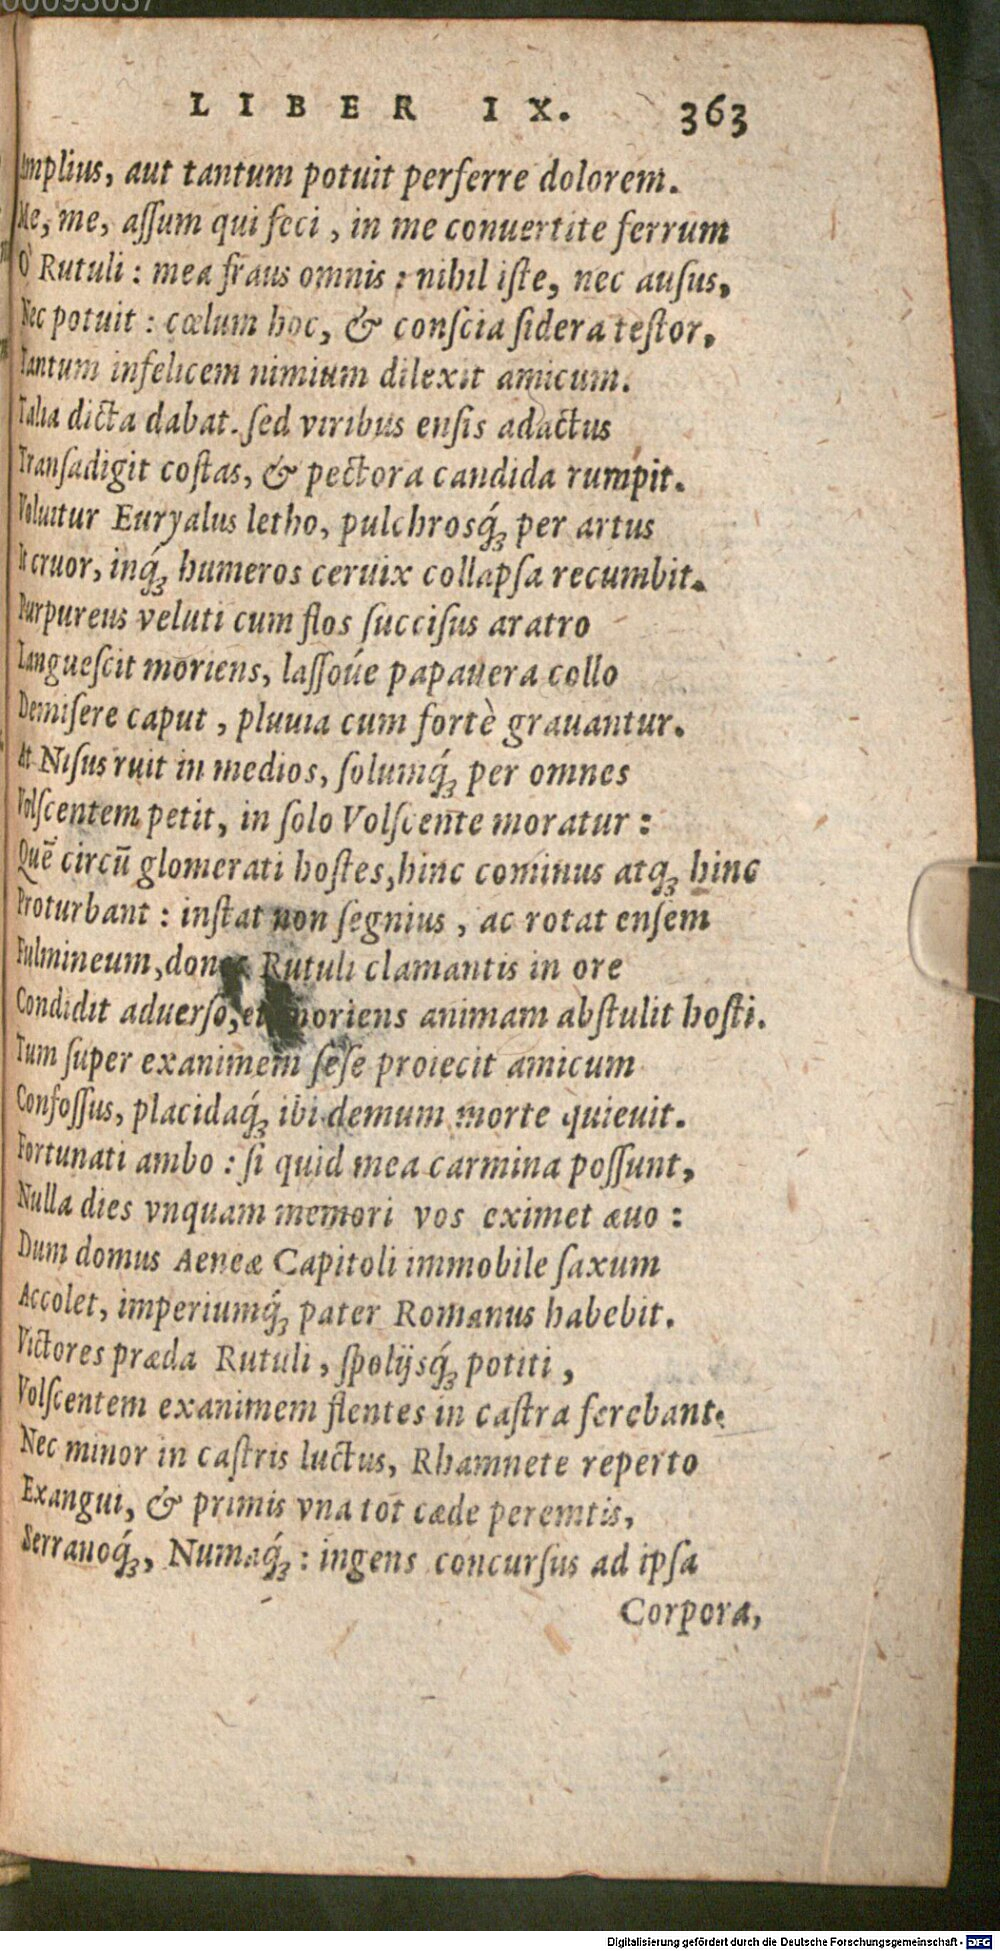 00093037
LIBER IX. 363
Amplius, aut tantum potuit perferre dolorem.
Me, me, aſſum qui feci, in me conuertite ferrum
O Rutuli: mea fraus omnis: nihil iſte, nec auſus,
Nec potuit: cœlum hoc, & conſcia ſidera teſtor,
Tantum infelicem nimium dilexit amicum.
Talia dicta dabat. ſed viribus enſis adactus
Tranſadigit coſtas, & pectora candida rumpit.
Voluitur Euryalus letho, pulchrosq́ꝫ per artus
It cruor, inq́ꝫ humeros ceruix collapſa recumbit.
Purpureus veluti cum flos ſucciſus aratro
Langueſcit moriens, laſſoúe papauera collo
Demiſere caput, pluuia cum fortè grauantur.
At Niſus ruit in medios, ſolumq́ꝫ per omnes
Volſcentem petit, in ſolo Volſcente moratur:
Quē circū glomerati hoſtes, hinc cominus atqꝫ hinc
Proturbant: inſtat non ſegnius, ac rotat enſem
Fulmineum, Rutuli clamantis in ore
Condidit aduerſo, et moriens animam abſtulit hoſti.
Tum ſuper exanimem ſeſe proiecit amicum
Confoſſus, placidaq́ꝫ ibi demum morte quieuit.
Fortunati ambo: ſi quid mea carmina poſſunt,
Nulla dies vnquam memori vos eximet æuo:
Dum domus Aeneæ Capitoli immobile ſaxum
Accolet, imperiumq́ꝫ pater Romanus habebit.
Victores præda Rutuli, ſpolijsq́ꝫ potiti,
Volſcentem exanimem flentes in caſtra ferebant.
Nec minor in caſtris luctus, Rhamnete reperto
Exangui, & primis vna tot cæde peremtis,
Serranoq́ꝫ, Numaq́ꝫ: ingens concurſus ad ipſa
Corpora,
Digitalisierung gefördert durch die Deutsche Forschungsgemeinschaft - DFG